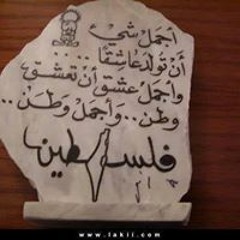 أجمل شيء
أن تولد عاشقا...
وأجمل عشق أن تعشق
وطن.. وأجمل وطن..
فلسطين
www.lakii.com